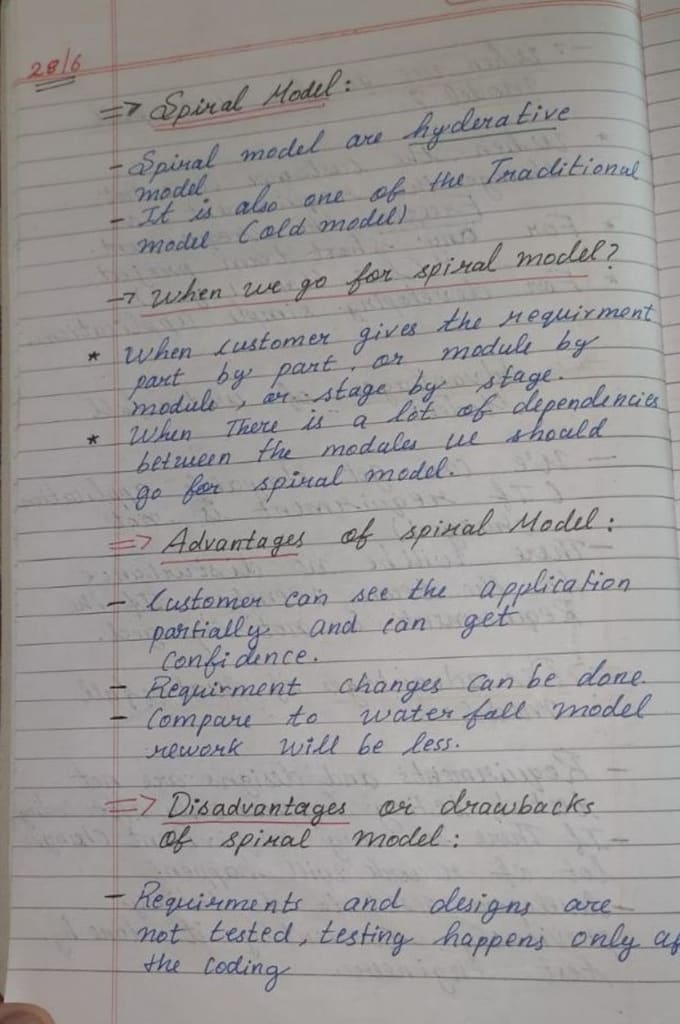 28/6
=> Spiral Model:
- Spiral model are hyderative
model
- It is also one of the Traditional
model (old model)
-> When we go for spiral model?
* When customer gives the requirment
part by part, or module by
module, or stage by stage.
* When There is a lot of dependencies
between the modules we should
go for spiral model.
=> Advantages of spiral Model:
- Customer can see the application
partially and can get
confidence.
- Requirment changes can be done.
- Compare to water fall model
rework will be less.
=> Disadvantages or drawbacks
of spiral model:
- Requirments and designs are
not tested, testing happens only af
the coding